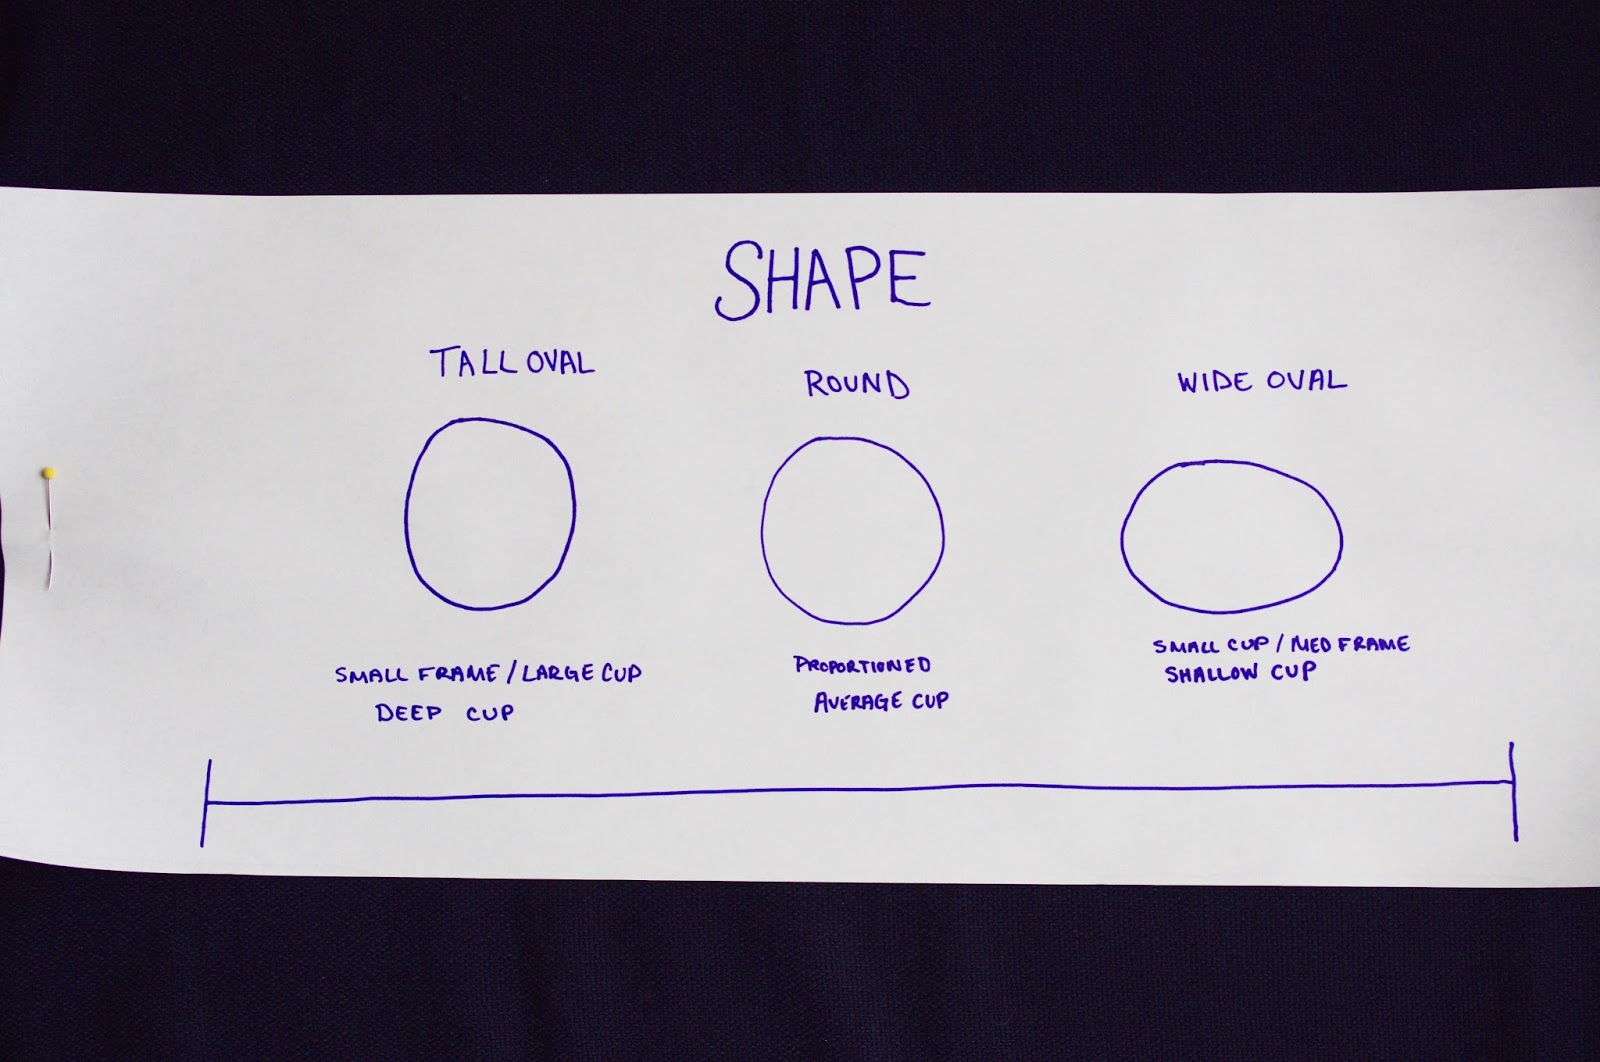 SHAPE
TALL OVAL
SMALL FRAME / LARGE CUP
DEEP CUP
ROUND
PROPORTIONED
AVERAGE CUP
WIDE OVAL
SMALL CUP / MED FRAME
SHALLOW CUP